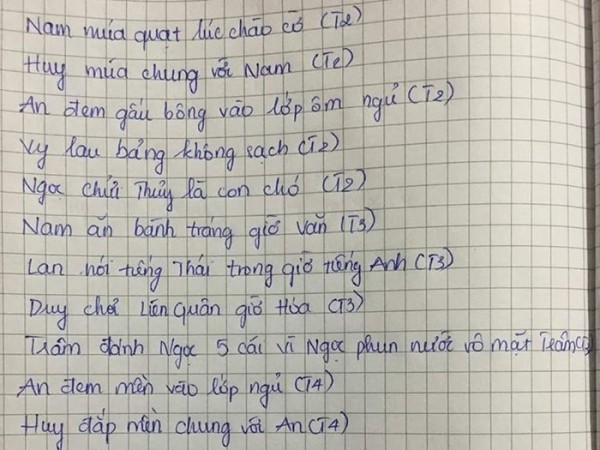 Nam múa quạt lúc chào cờ (T2)
Huy múa chung với Nam (T2)
An đem gấu bông vào lớp ôm ngủ (T2)
Vy lau bảng không sạch (T2)
Ngọc chửi Thủy là con chó (T2)
Nam ăn bánh tráng giờ văn (T3)
Lan nói tiếng Thái trong giờ tiếng Anh (T3)
Duy chơi Liên Quân giờ Hóa (T3)
Trâm đánh Ngọc 5 cái vì Ngọc phun nước vô mặt Trâm
An đem mền vào lớp ngủ (T4)
Huy đắp mền chung với An (T4)